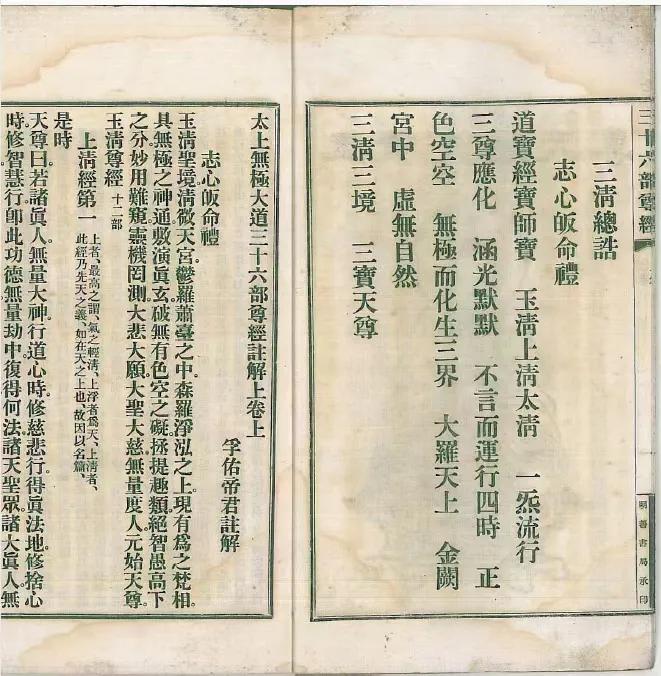 三十六部尊經
明善書局承印
三清總誥
志心皈命禮
道寶經寶師寶　玉清上清太清　一炁流行
三尊應化　涵光默默　不言而運行四時　正
色空空　無極而化生三界　大羅天上　金闕
宮中　虛無自然
三清三境　三寶天尊
太上無極大道三十六部尊經註解上卷上
孚佑帝君註解
志心皈命禮
玉清聖境。清微天宮。鬱羅蕭臺之中。森羅淨泓之上。現有爲之梵相。
具無極之神通。敷演眞玄。破無有色空之礙。拯提趣類。絕智愚高下
之分。妙用難窺。靈機罔測。大悲大願。大聖大慈。無量度人。元始天尊
玉清尊經 十二部
上清經第一 上者、最高之謂、氣之輕清、上浮者爲天、上清者、
此經乃先天之義、如在天之上也、故因以名篇、
是時
天尊曰。若諸眞人。無量大神。行道心時。修慈悲行。得眞法地。修捨心
時。修智慧行。卽此功德。無量劫中。復得何法。諸天聖眾。諸大眞人。無